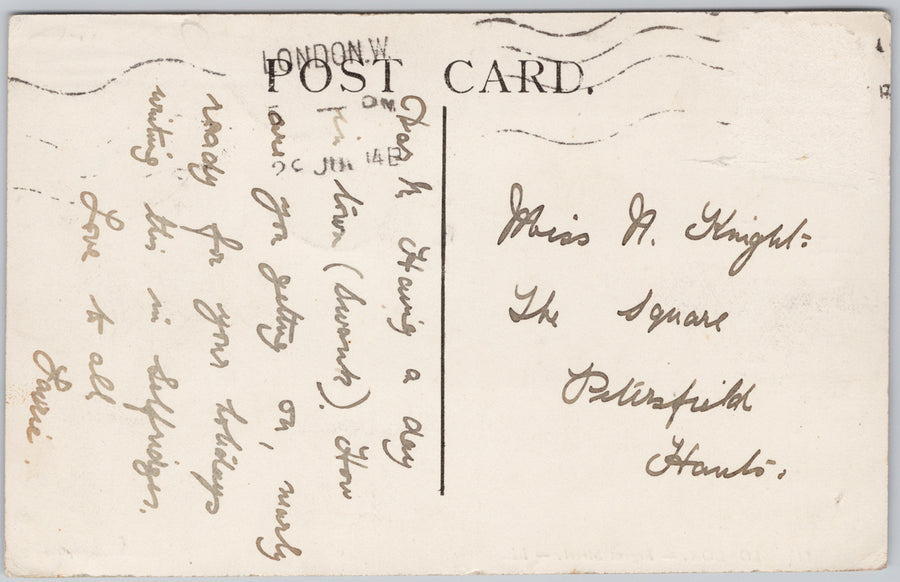 POST CARD.
LONDON.W.
JUL 14
Dear N. Having a day
in town (swank). How
are you getting on, nearly
ready for your holidays
writing this in Selfridges.
Love to all
Miss N. Knight:
The Square
Petersfield
Hants.